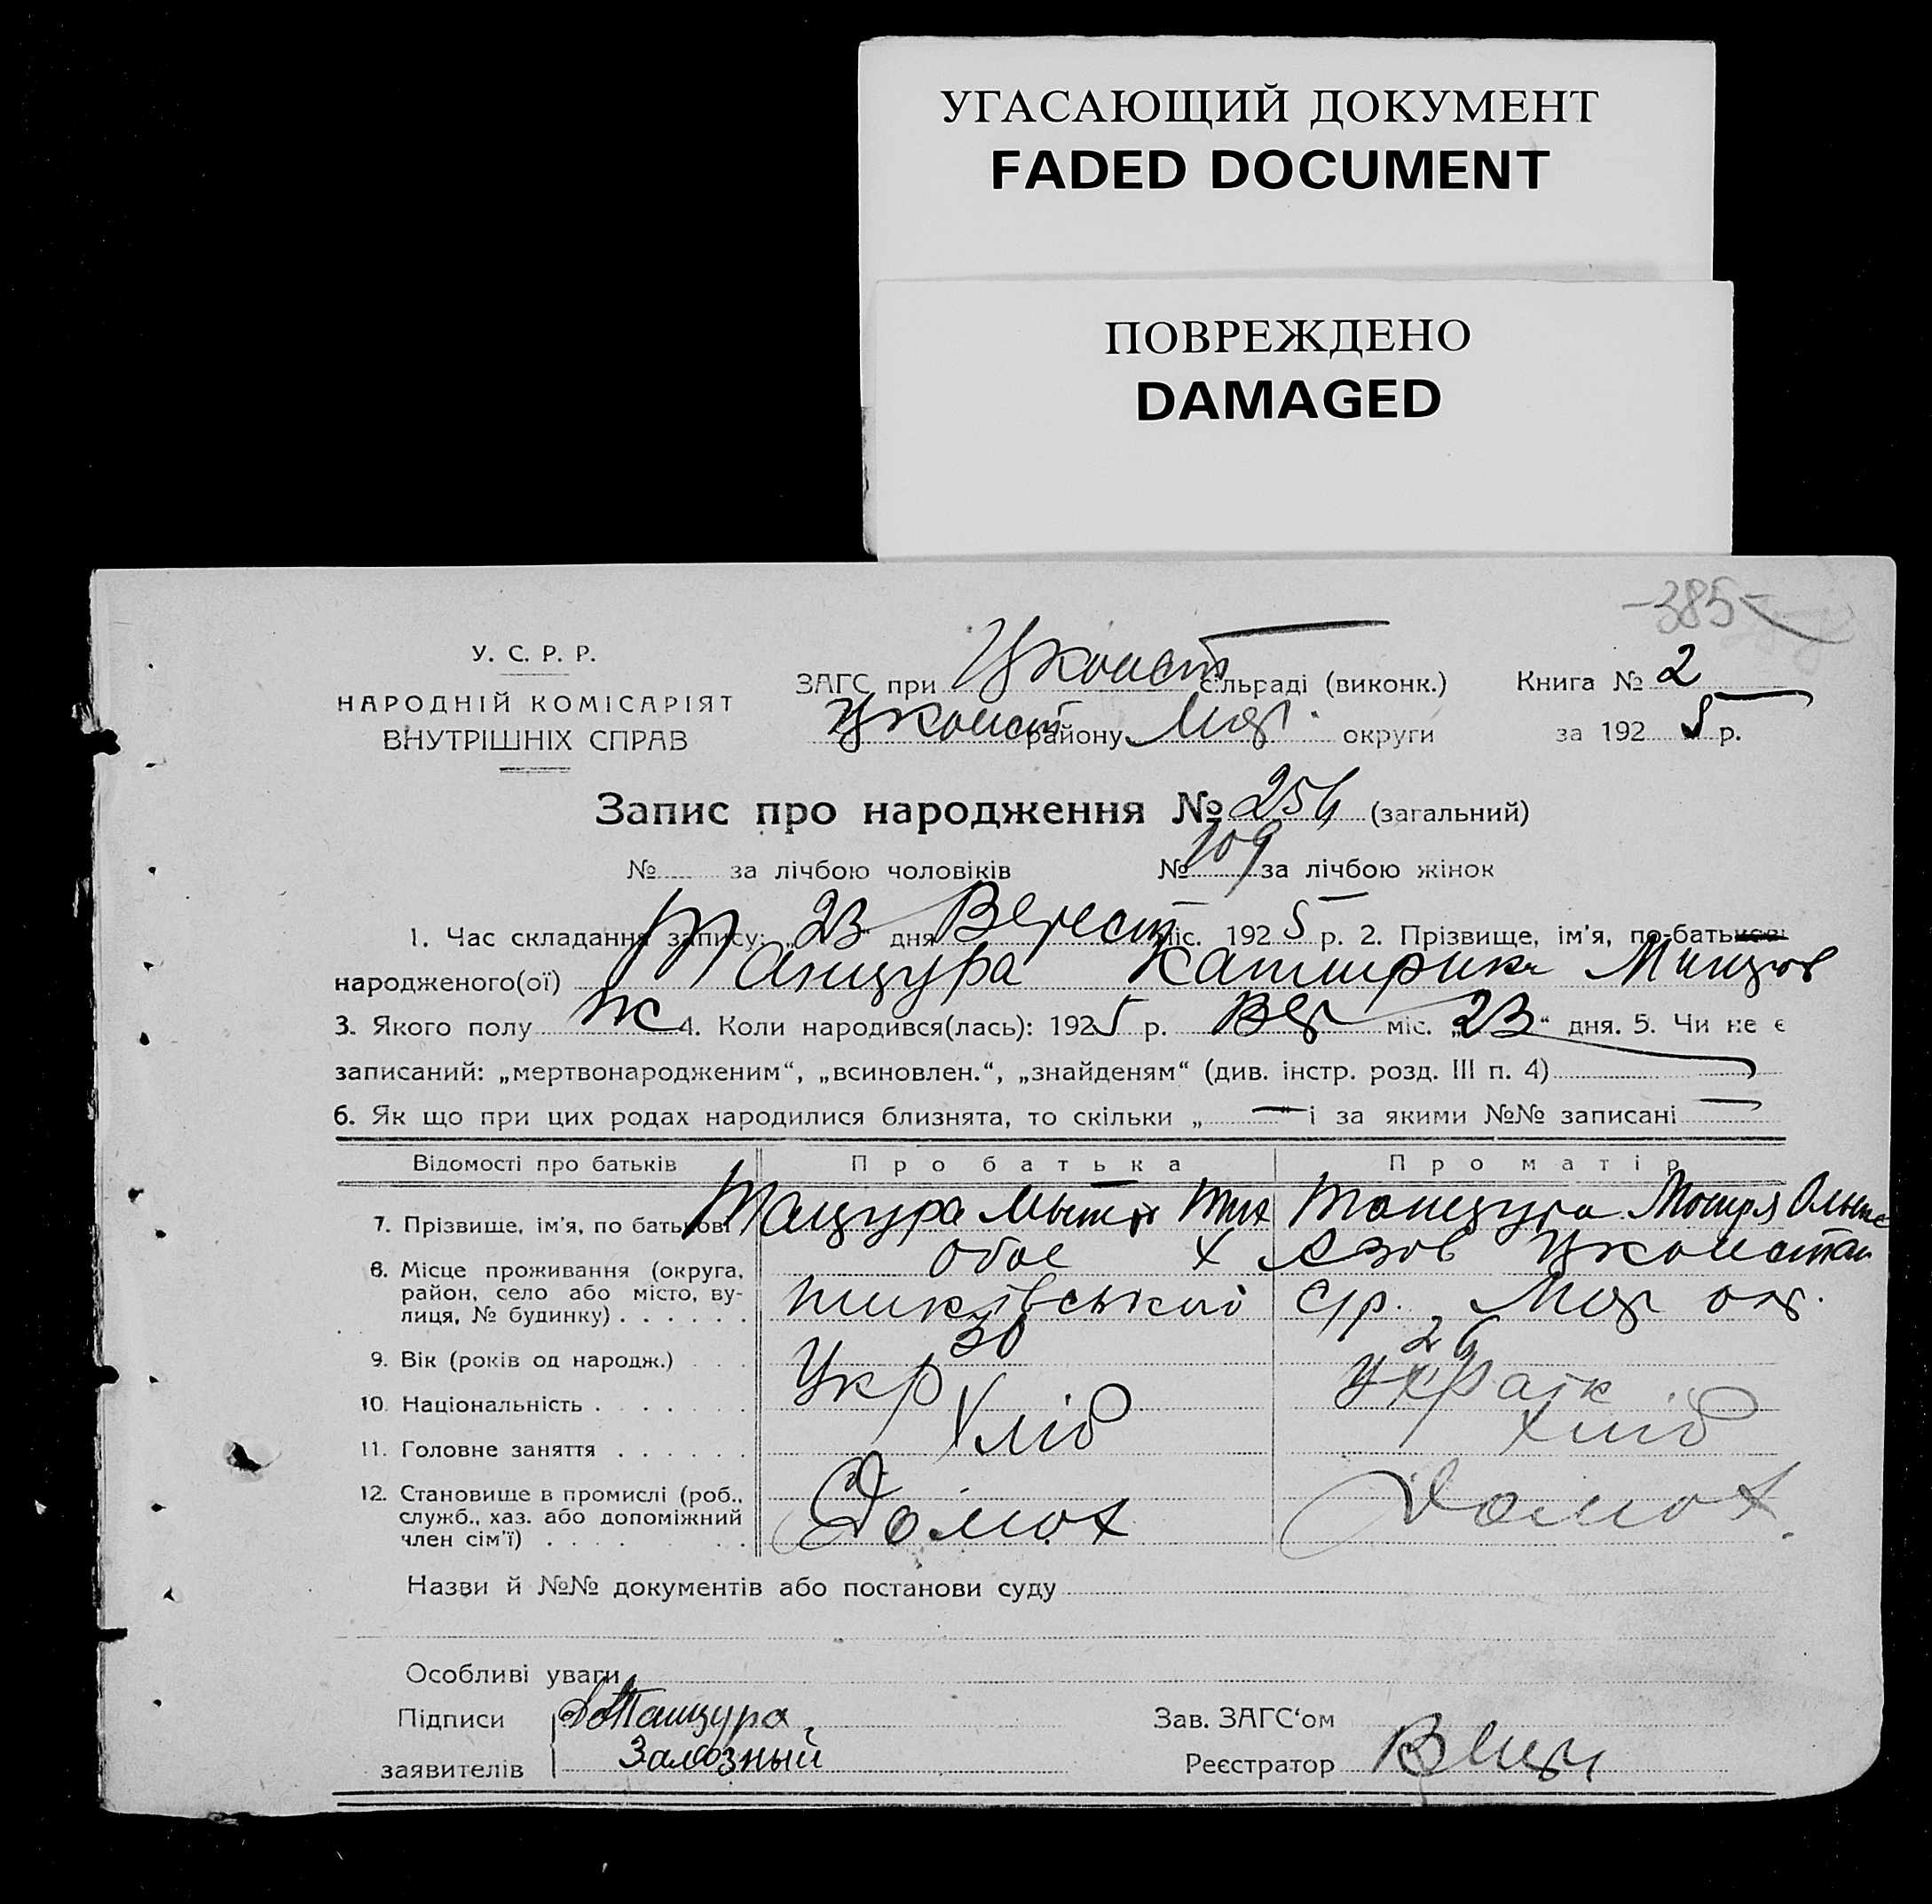 УГАСАЮЩИЙ ДОКУМЕНТ
FADED DOCUMENT
ПОВРЕЖДЕНО
DAMAGED
-385-
У. С. Р. Р.
НАРОДНІЙ КОМІСАРІЯТ
ВНУТРІШНІХ СПРАВ
ЗАГС при Цконст сільраді (виконк.)
Цконст району Мар округи
Книга № 2
за 1925 р.
Запис про народження № 254 (загальний)
№ за лічбою чоловіків № 109 за лічбою жінок
1. Час складання запису: „23“ дня Верест міс. 1925 р. 2. Прізвище, ім'я, по батькові
народженого(ої) Танцура Катирина
3. Якого полу ж 4. Коли народився(лась): 1925 р. Вер міс. „23“ дня. 5. Чи не є
записаний: „мертвонародженим“, „всиновлен.“, „знайденям“ (див. інстр. розд. III п. 4)
6. Як що при цих родах народилися близнята, то скільки „ — “ і за якими №№ записані —
Відомості про батьків Про батька Про матір
7. Прізвище, ім'я, по батькові Танцура Тих Танцура Мотря
8. Місце проживання (округа, район, село або місто, вулиця, № будинку) обоє х Азов Цконстан
тинівський Ср. Мар ок.
9. Вік (років од народж.) 30 26
10. Національність Укр Україк
11. Головне заняття Хліб Хліб
12. Становище в промислі (роб., служб., хаз. або допоміжний член сім'ї) Домох Домох.
Назви й №№ документів або постанови суду
Особливі уваги
Підписи Танцура
заявителів Залозный
Зав. ЗАГС'ом
Реєстратор